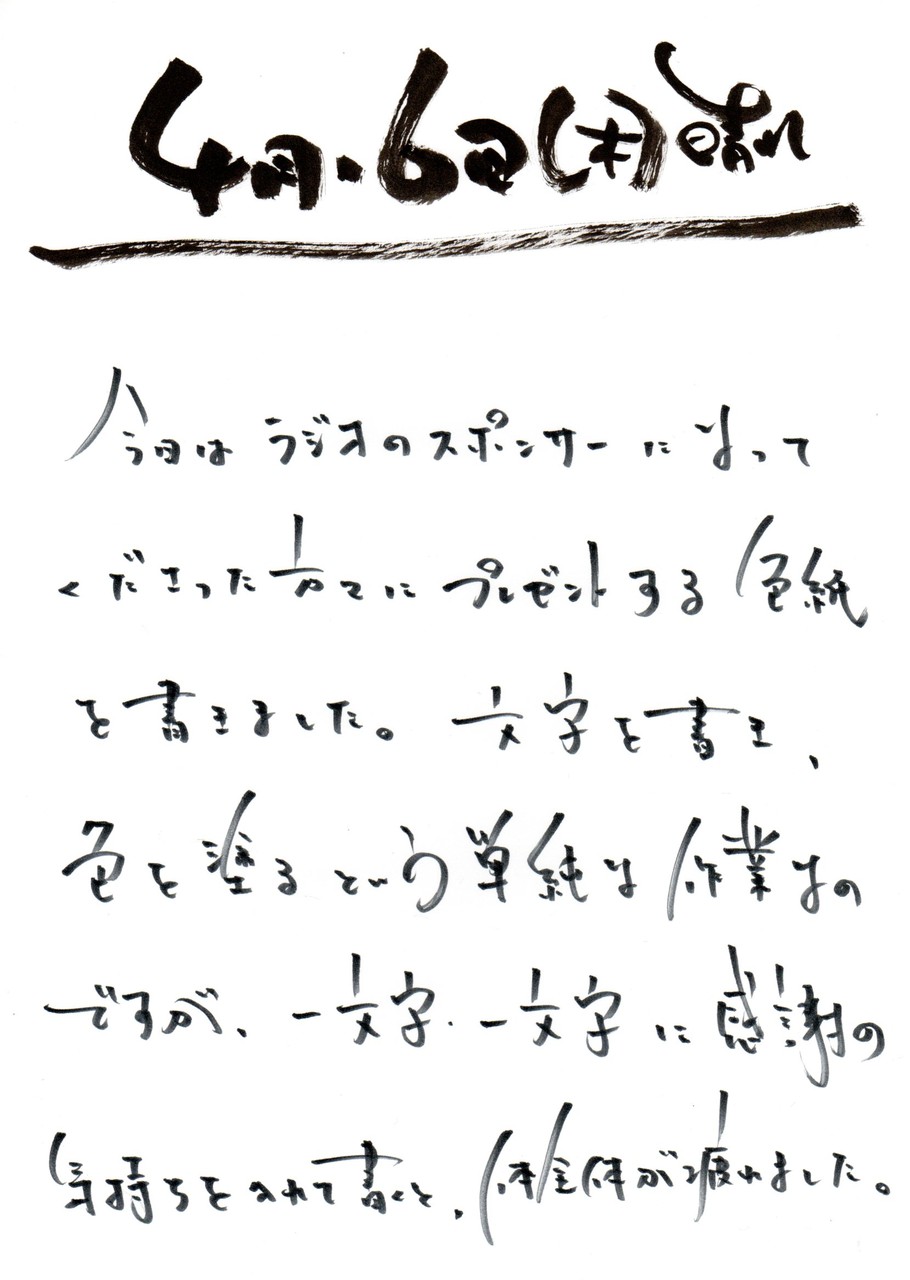 4月・6日(木)晴れ
今日はラジオのスポンサーになって
くださった方々に プレゼントする色紙
を書きました。文字を書き、
色を塗るという単純な作業なの
ですが、一文字・一文字に感謝の
気持ちを入れて書くと、体全体が疲れました。